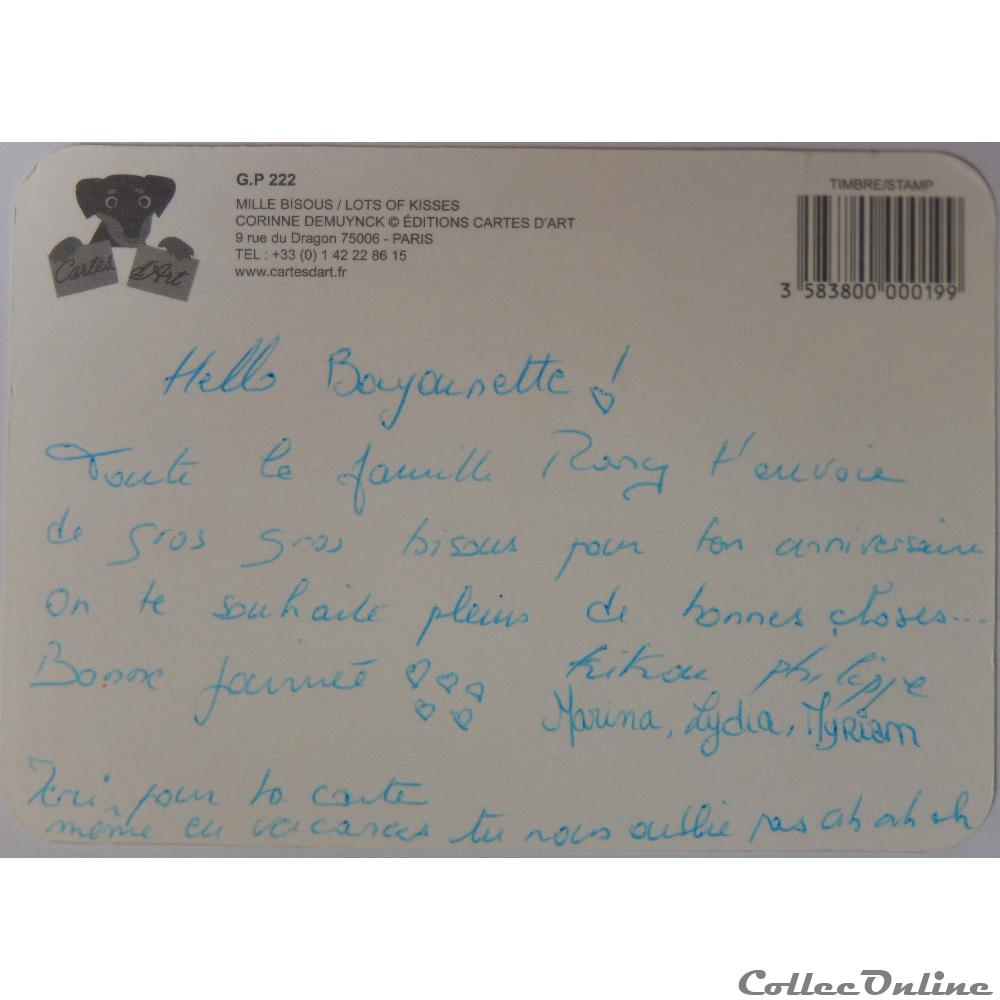 G.P 222
MILLE BISOUS / LOTS OF KISSES
CORINNE DEMUYNCK © ÉDITIONS CARTES D'ART
9 rue du Dragon 75006 - PARIS
TEL : +33 (0) 1 42 22 86 15
www.cartesdart.fr
Cartes d'Art
TIMBRE/STAMP
3 583800 000199
Hello Bouyounette !
Toute la famille t'envoie
de gros gros bisous pour ton anniversaire
on te souhaite pleins de bonnes choses...
Bonne journée kikou philippe
Marina, Lydia, Myriam
pour ta carte
même en vacances tu nous oublie pas ah ah ah
CollecOnline